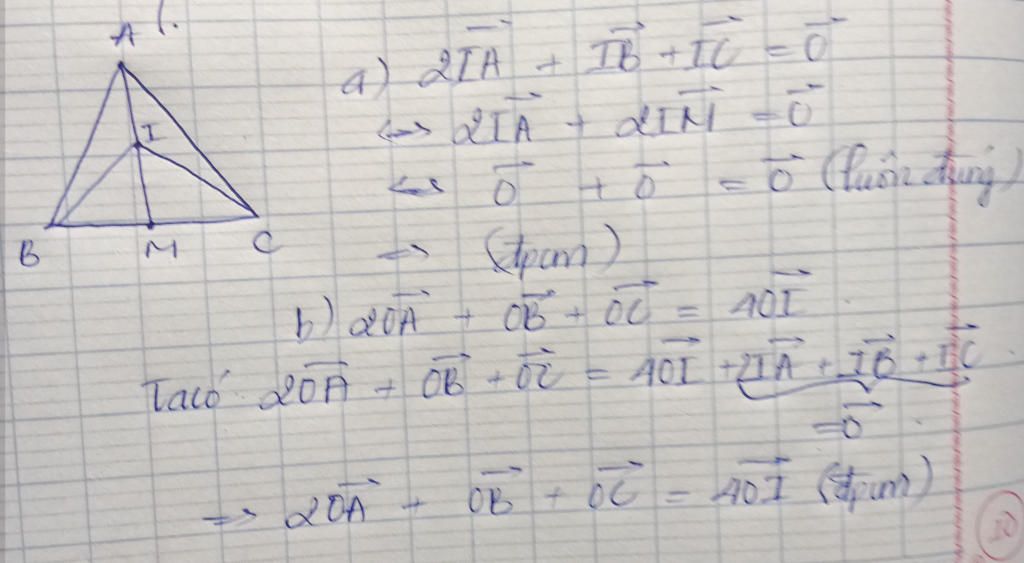 1.
A
I
B M C
a) 2IA⃗ + IB⃗ + IC⃗ = 0⃗
<-> 2IA⃗ + 2IM⃗ = 0⃗
<=> 0⃗ + 0⃗ = 0⃗ (luôn đúng)
=> (đpcm)
b) 2OA⃗ + OB⃗ + OC⃗ = 4OI⃗
Ta có 2OA⃗ + OB⃗ + OC⃗ = 4OI⃗ + 2IA⃗ + IB⃗ + IC⃗
= 0⃗
=> 2OA⃗ + OB⃗ + OC⃗ = 4OI⃗ (đpcm)
10